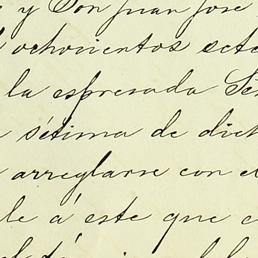 y Don Juan José
ochocientos sete
la espresada Se
sétima de dich
arreglarse con el
le á este que e